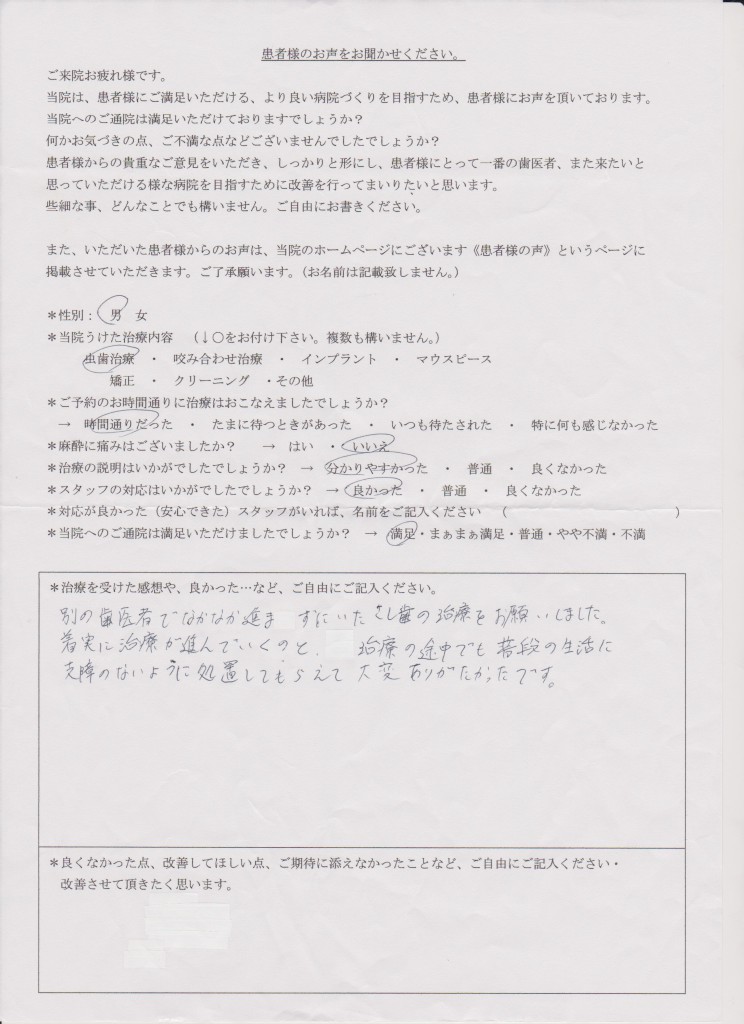 患者様のお声をお聞かせください。
ご来院お疲れ様です。
当院は、患者様にご満足いただける、より良い病院づくりを目指すため、患者様にお声を頂いております。
当院へのご通院は満足いただけておりますでしょうか？
何かお気づきの点、ご不満な点などございませんでしたでしょうか？
患者様からの貴重なご意見をいただき、しっかりと形にし、患者様にとって一番の歯医者、また来たいと
思っていただける様な病院を目指すために改善を行ってまいりたいと思います。
些細な事、どんなことでも構いません。ご自由にお書きください。
また、いただいた患者様からのお声は、当院のホームページにございます《患者様の声》というページに
掲載させていただきます。ご了承願います。（お名前は記載致しません。）
＊性別： 男　女
＊当院うけた治療内容　（↓〇をお付け下さい。複数も構いません。）
虫歯治療　・　咬み合わせ治療　・　インプラント　・　マウスピース
矯正　・　クリーニング　・その他
＊ご予約のお時間通りに治療はおこなえましたでしょうか？
→　時間通りだった　・　たまに待つときがあった　・　いつも待たされた　・　特に何も感じなかった
＊麻酔に痛みはございましたか？　→　はい　・　いいえ
＊治療の説明はいかがでしたでしょうか？　→　分かりやすかった　・　普通　・　良くなかった
＊スタッフの対応はいかがでしたでしょうか？　→　良かった　・　普通　・　良くなかった
＊対応が良かった（安心できた）スタッフがいれば、名前をご記入ください　（　　　　　　　　　　　）
＊当院へのご通院は満足いただけましたでしょうか？　→　満足・まぁまぁ満足・普通・やや不満・不満
＊治療を受けた感想や、良かった…など、ご自由にご記入ください。
別の歯医者でなかなか進ま　ずにいた さし歯の治療をお願いしました。
着実に治療が進んでいくのと、　治療の途中でも普段の生活に
支障のないように処置してもらえて 大変ありがたかったです。
＊良くなかった点、改善してほしい点、ご期待に添えなかったことなど、ご自由にご記入ください・
改善させて頂きたく思います。